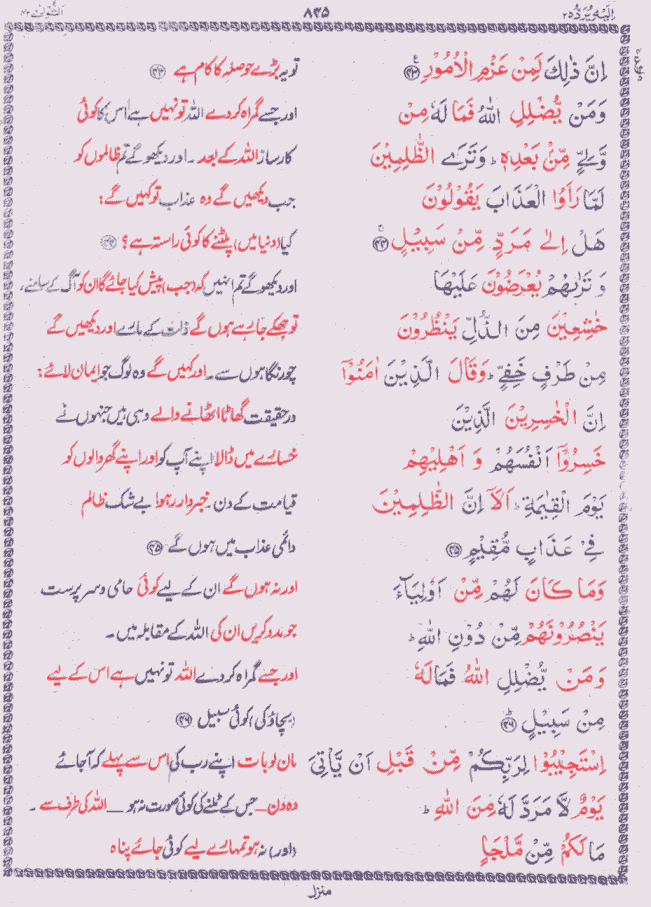 اِلَیْهِ یُرَدُّ ۲۵ ۸۳۵ الشُّوْرٰی ۴۲
اِنَّ ذٰلِكَ لَمِنْ عَزْمِ الْاُمُوْرِ ﴿۴۳﴾ تو یہ بڑے حوصلہ کا کام ہے ﴿۴۳﴾
وَمَنْ یُّضْلِلِ اللّٰهُ فَمَا لَهٗ مِنْ اور جسے گمراہ کردے اللہ تو نہیں ہے اس کا کوئی
وَّلِیٍّ مِّنْۢ بَعْدِهٖ ؕ وَتَرَی الظّٰلِمِیْنَ کارساز اللہ کے بعد ۔ اور دیکھو گے تم ظالموں کو
لَمَّا رَاَوُا الْعَذَابَ یَقُوْلُوْنَ جب دیکھیں گے وہ عذاب تو کہیں گے :
هَلْ اِلٰی مَرَدٍّ مِّنْ سَبِیْلٍ ﴿۴۴﴾ کیا (دنیا میں) پلٹنے کا کوئی راستہ ہے ؟ ﴿۴۴﴾
وَ تَرٰىهُمْ یُعْرَضُوْنَ عَلَیْهَا اور دیکھو گے تم انہیں کہ (جب) پیش کیا جائے گا ان کو آگ کے سامنے،
خٰشِعِیْنَ مِنَ الذُّلِّ یَنْظُرُوْنَ تو جھکے جارہے ہوں گے ذلت کے مارے اور دیکھیں گے
مِنْ طَرْفٍ خَفِیٍّ ؕ وَقَالَ الَّذِیْنَ اٰمَنُوْۤا چور نگاہوں سے ۔ اور کہیں گے وہ لوگ جو ایمان لائے :
اِنَّ الْخٰسِرِیْنَ الَّذِیْنَ درحقیقت گھاٹا اٹھانے والے وہی ہیں جنہوں نے
خَسِرُوْۤا اَنْفُسَهُمْ وَ اَهْلِیْهِمْ خسارے میں ڈالا اپنے آپ کو اور اپنے گھر والوں کو
یَوْمَ الْقِیٰمَةِ ؕ اَلَاۤ اِنَّ الظّٰلِمِیْنَ قیامت کے دن ۔ خبردار رہو! بے شک ظالم
فِیْ عَذَابٍ مُّقِیْمٍ ﴿۴۵﴾ دائمی عذاب میں ہوں گے ﴿۴۵﴾
وَمَا كَانَ لَهُمْ مِّنْ اَوْلِیَآءَ اور نہ ہوں گے ان کے لیے کوئی حامی و سرپرست
یَنْصُرُوْنَهُمْ مِّنْ دُوْنِ اللّٰهِ ؕ جو مدد کریں ان کی اللہ کے مقابلہ میں ۔
وَمَنْ یُّضْلِلِ اللّٰهُ فَمَا لَهٗ اور جسے گمراہ کردے اللہ تو نہیں ہے اس کے لیے
مِنْ سَبِیْلٍ ﴿۴۶﴾ (بچاؤ کی) کوئی سبیل ﴿۴۶﴾
اِسْتَجِیْبُوْا لِرَبِّكُمْ مِّنْ قَبْلِ اَنْ یَّاْتِیَ مان لو بات اپنے رب کی اس سے پہلے کہ آجائے
یَوْمٌ لَّا مَرَدَّ لَهٗ مِنَ اللّٰهِ ؕ وہ دن – جس کے ٹلنے کی کوئی صورت نہ ہو — اللہ کی طرف سے ۔
مَا لَكُمْ مِّنْ مَّلْجَاٍ (اور) نہ ہو تمہارے لیے کوئی جائے پناہ
منزل